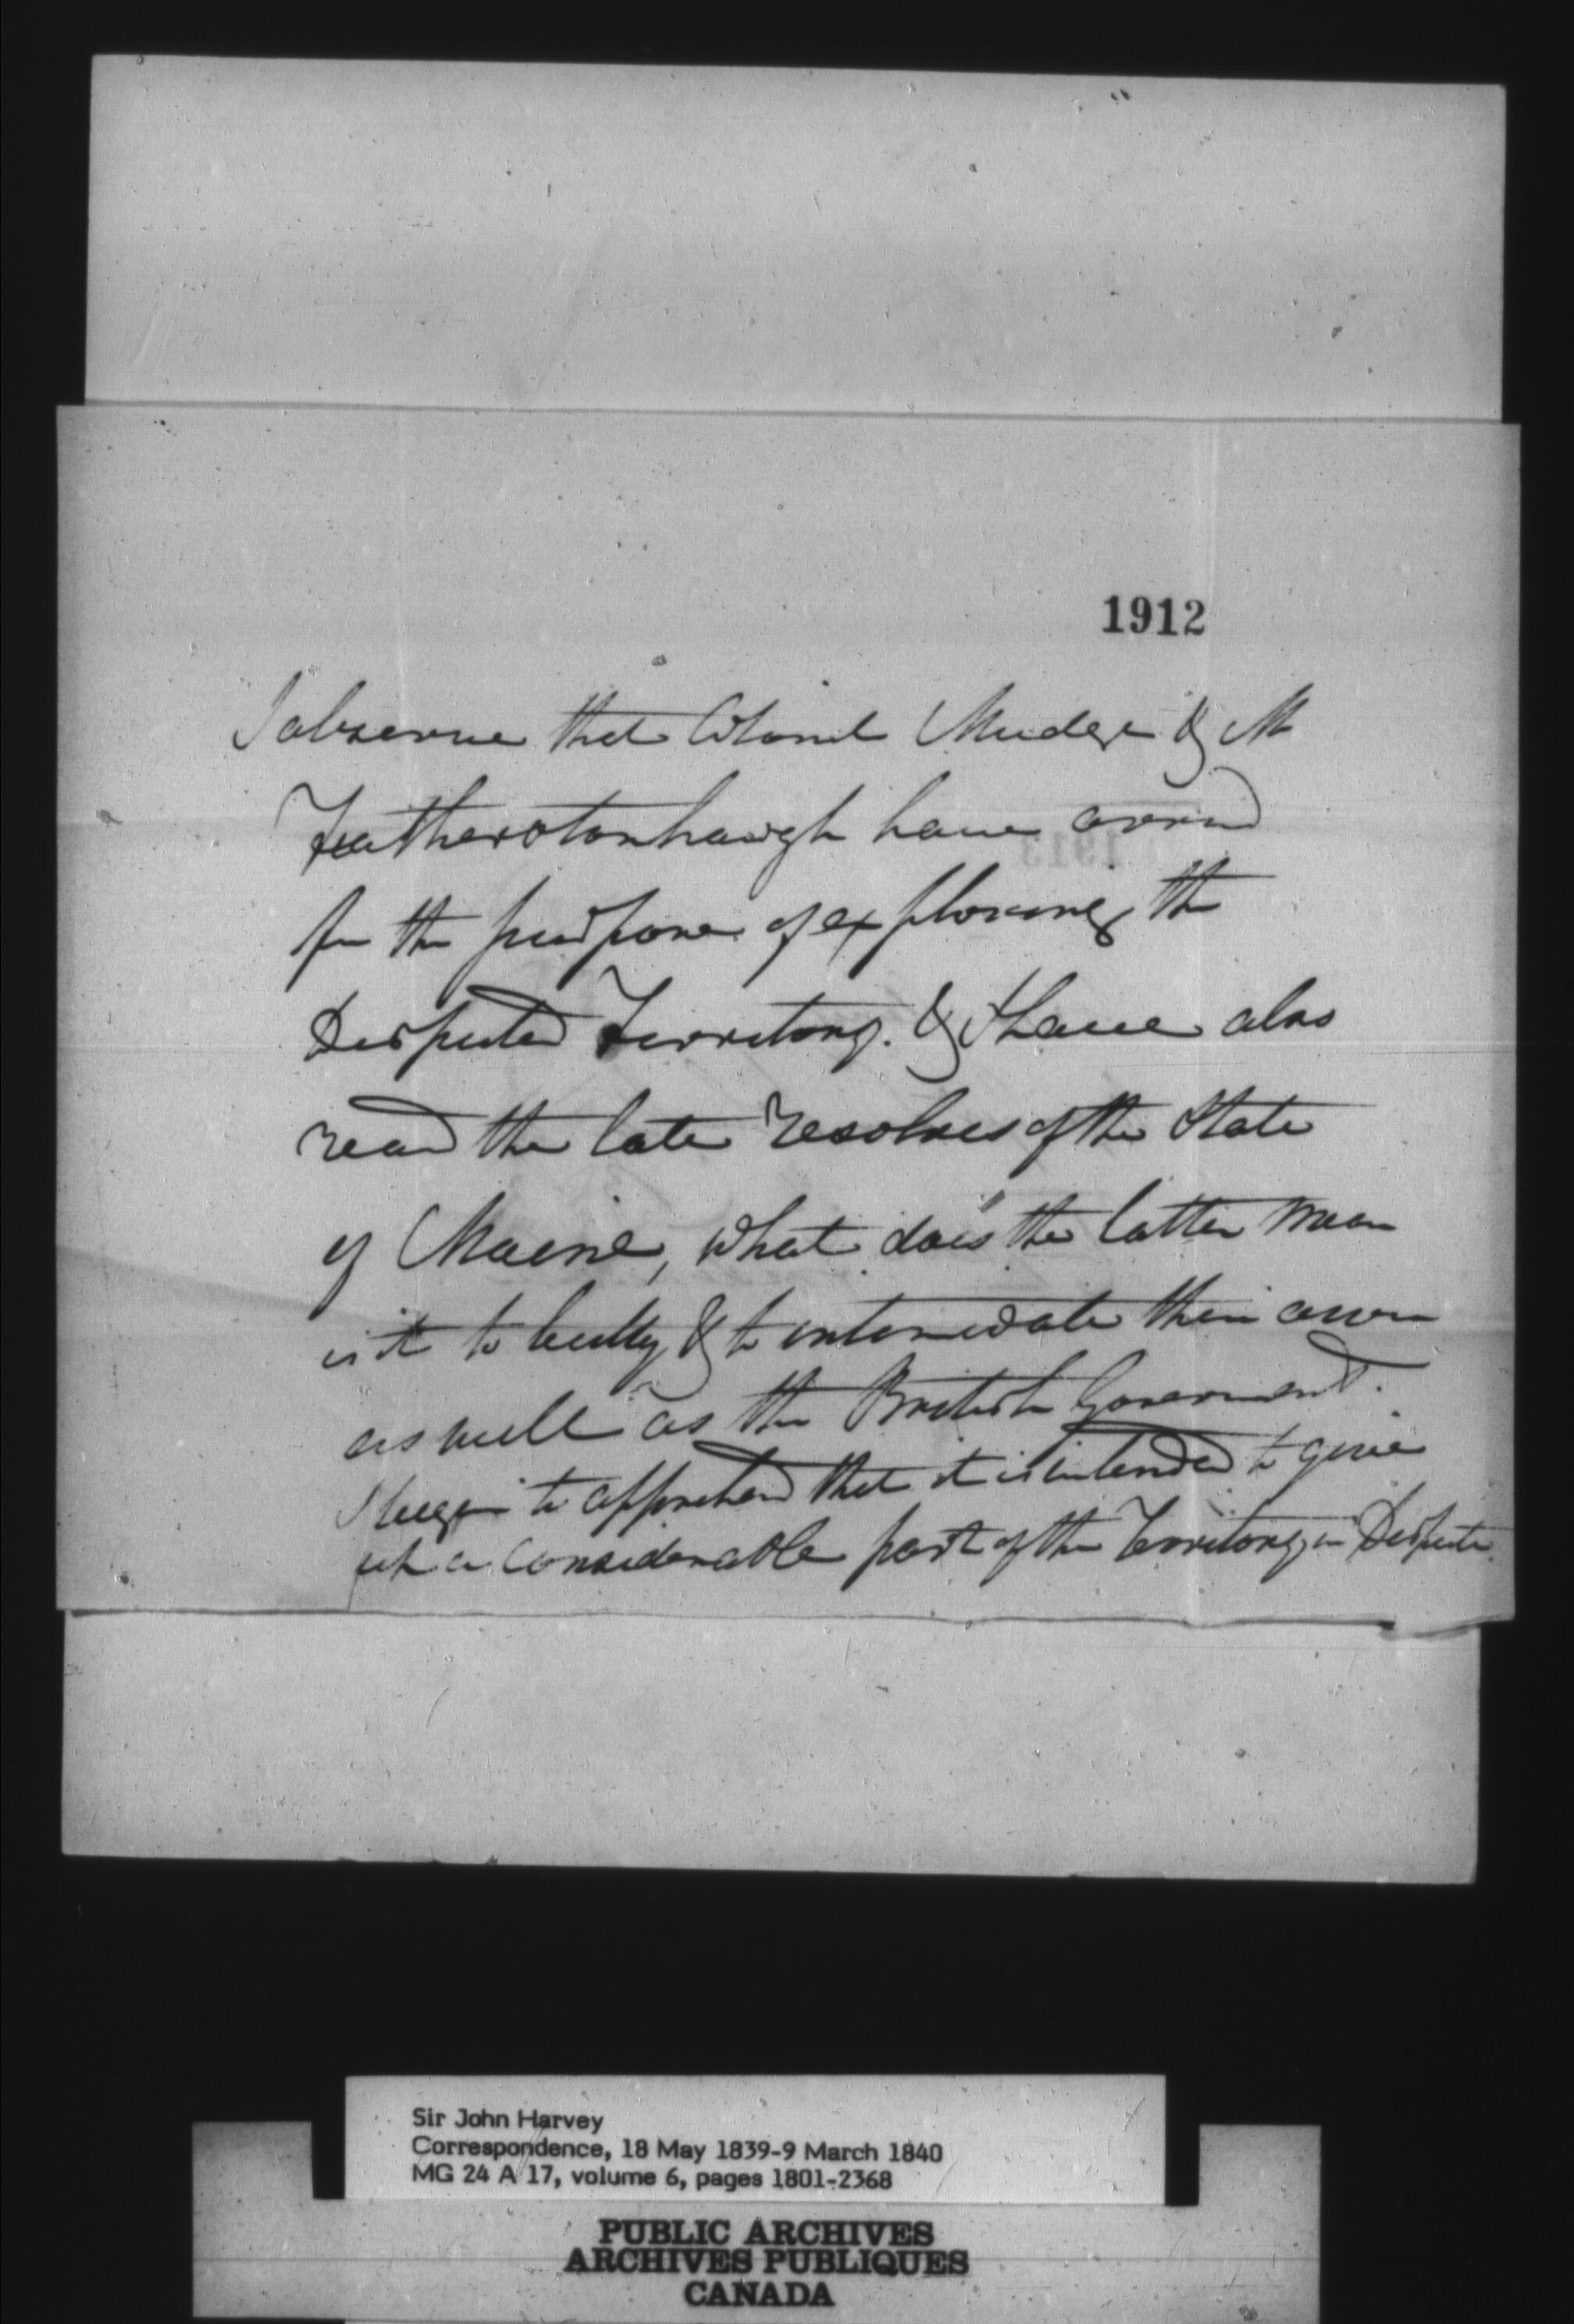 1912
I observe that Colonel Mudge & Mr
Featherstonhaugh have arrived
for the purpose of exploring the
Disputed Territory. & I have also
read the late resolves of the State
of Maine, what does the latter mean
is it to bully & to intimidate their own
as well as the British Government.
I begin to apprehend that it is intended to give
up a considerable part of the Territory in Dispute
Sir John Harvey
Correspondence, 18 May 1839-9 March 1840
MG 24 A 17, volume 6, pages 1801-2368
PUBLIC ARCHIVES
ARCHIVES PUBLIQUES
CANADA